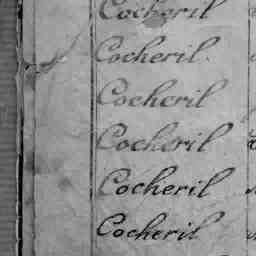 Cocheril
Cocheril
Cocheril
Cocheril
Cocheril
Cocheril